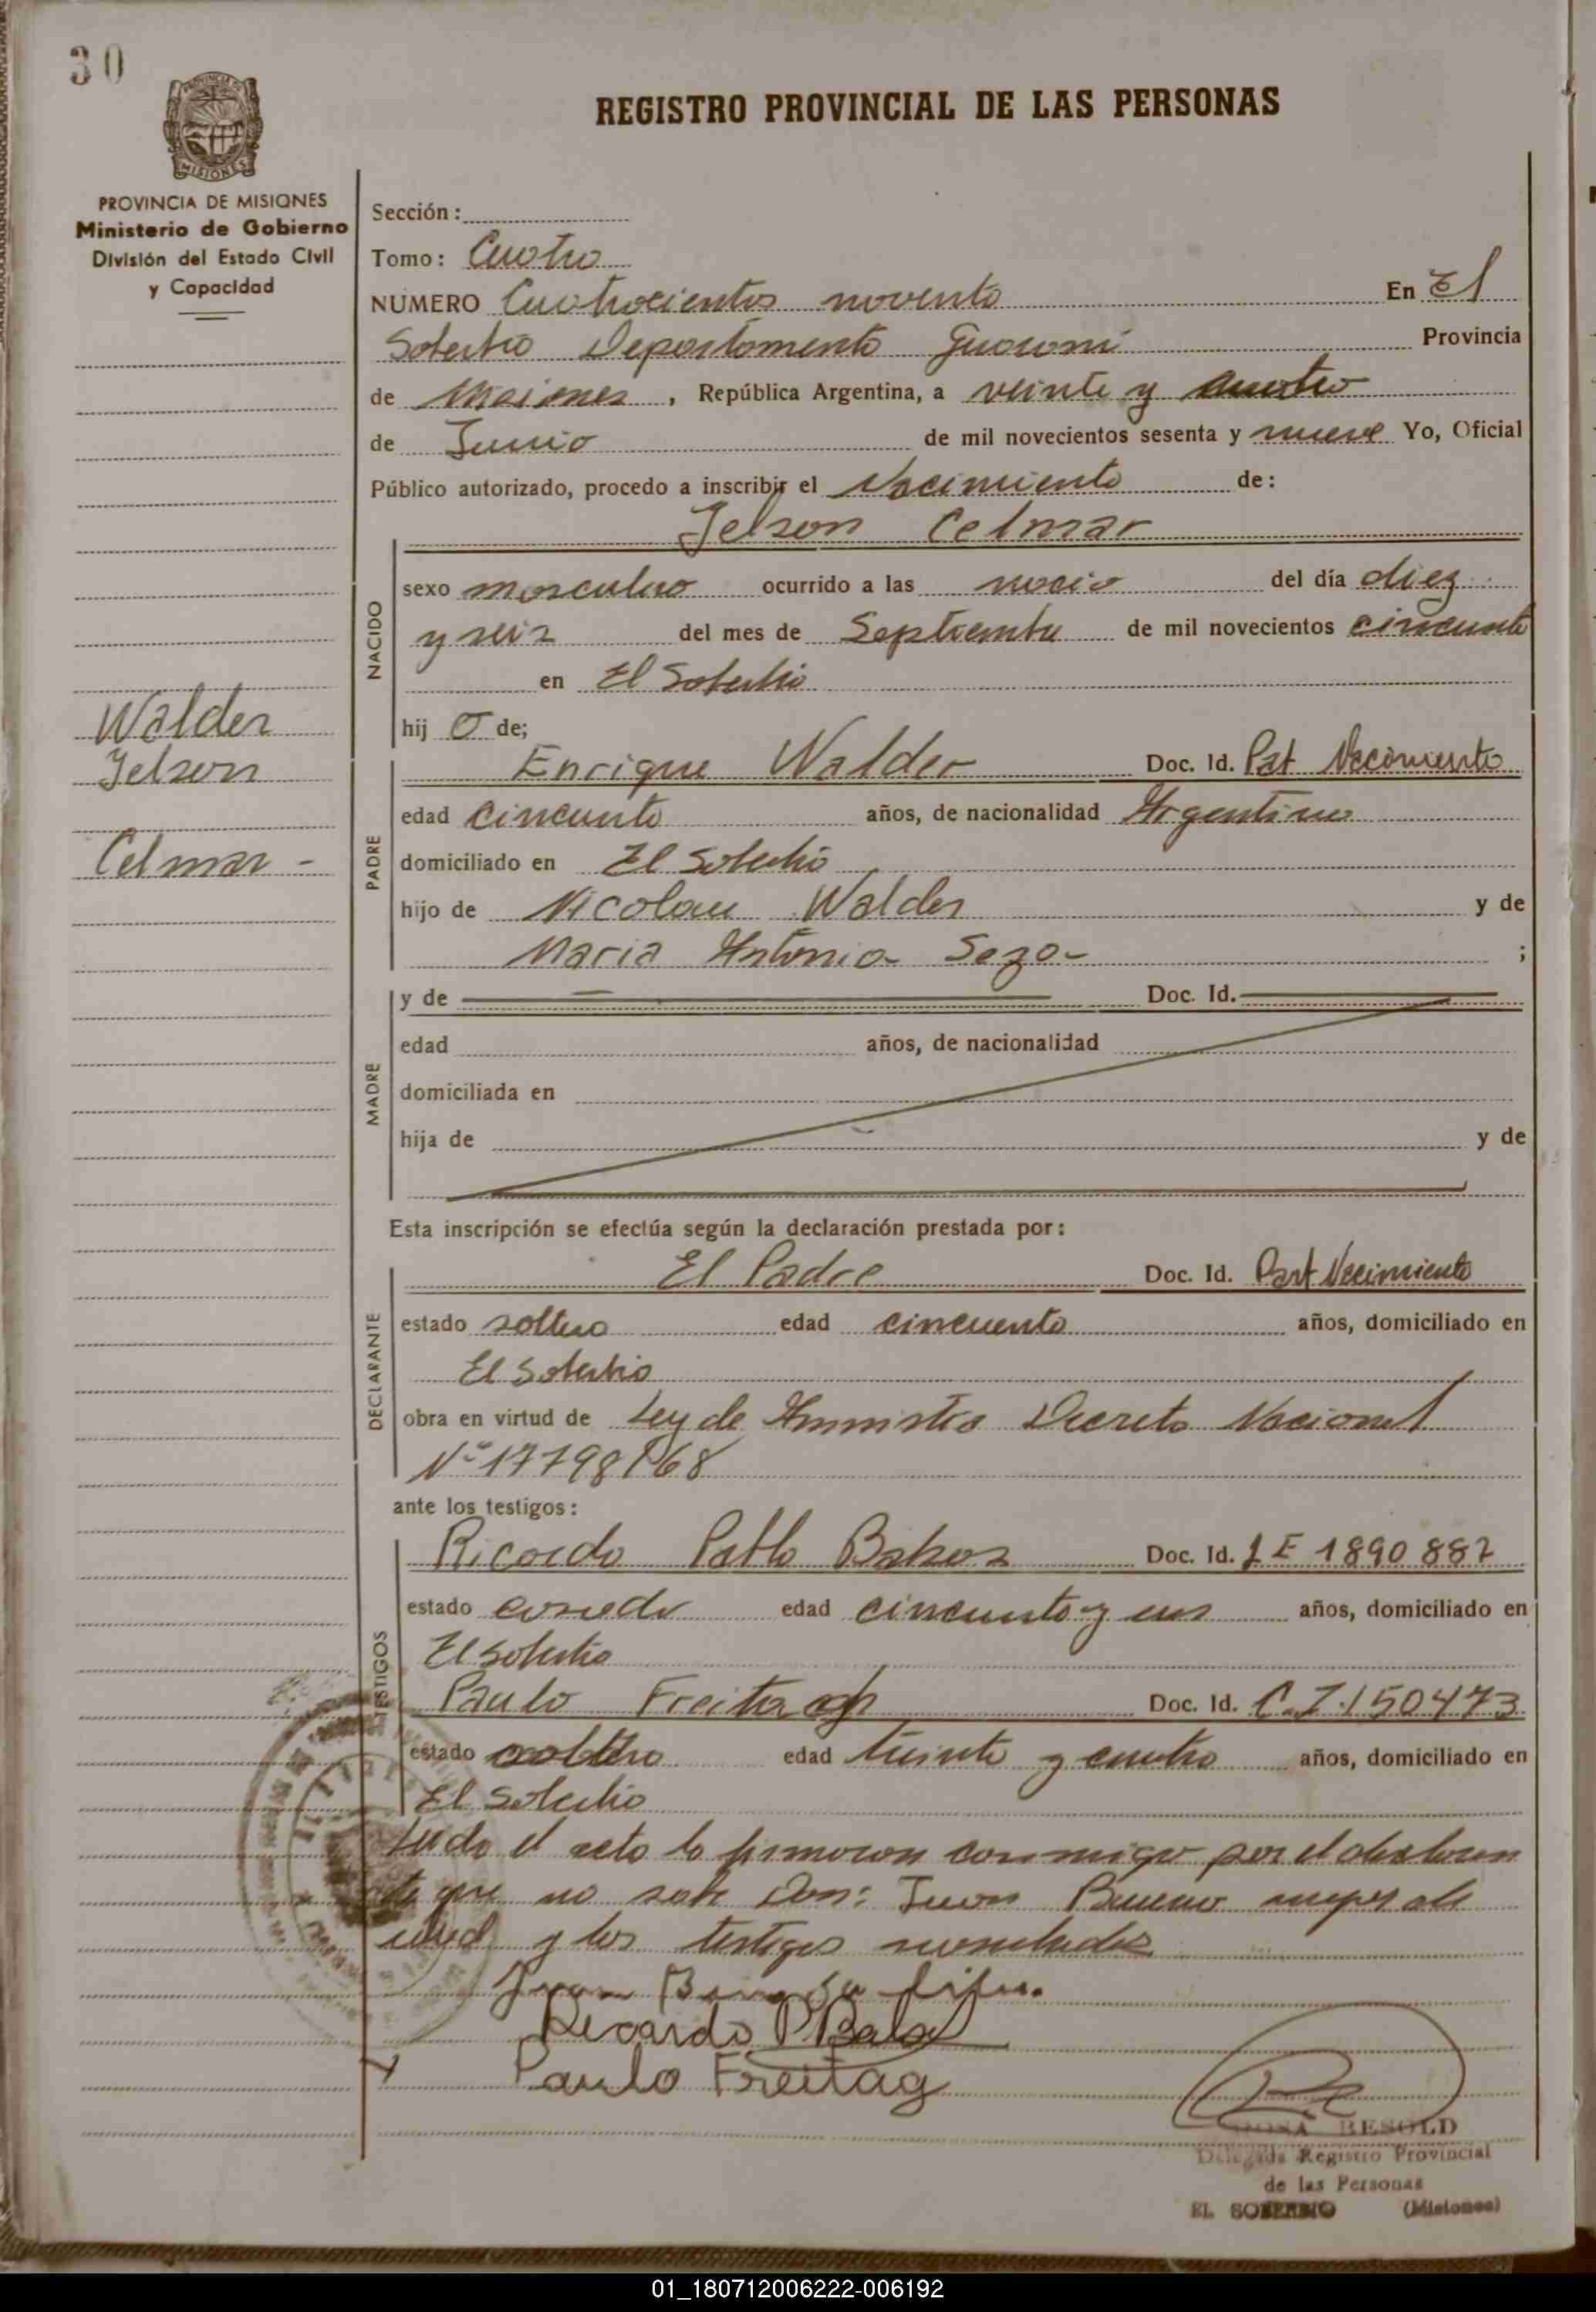 30
REGISTRO PROVINCIAL DE LAS PERSONAS
MISIONES
PROVINCIA DE MISIONES
Ministerio de Gobierno
División del Estado Civil
y Capacidad
Sección:
Tomo: Cuatro
NUMERO Cuatrocientos noventa En El
Soberbio Departamento Guaraní Provincia
de Misiones, República Argentina, a veinte y cuatro
de Junio de mil novecientos sesenta y nueve Yo, Oficial
Público autorizado, procedo a inscribir el Nacimiento de:
Jelson Celmar
NACIDO
sexo masculino ocurrido a las nació del día diez
y seis del mes de Septiembre de mil novecientos cincuenta
en El Soberbio
hijo de;
Walder
Jelson
Celmar -
PADRE
Enrique Walder Doc. Id. Pat Nacimiento
edad cincuenta años, de nacionalidad Argentino
domiciliado en El Soberbio
hijo de Nicolau Walder y de
Maria Antonia Sezo- ;
MADRE
y de Doc. Id.
edad años, de nacionalidad
domiciliada en
hija de y de
Esta inscripción se efectúa según la declaración prestada por:
DECLARANTE
El Padre Doc. Id. Part Nacimiento
estado soltero edad cincuenta años, domiciliado en
El Soberbio
obra en virtud de Ley de Amnistia Decreto Nacional
Nº 17798/68
ante los testigos:
TESTIGOS
Ricardo Pablo Doc. Id. LE 1890887
estado casado edad cincuenta y un años, domiciliado en
El Soberbio
Paulo Freitag Doc. Id. C.I.150473
estado soltero edad treinta y cuatro años, domiciliado en
El Soberbio
Leido el acta la firmaron conmigo por el declaran
te que no sabe Don: Juan Bueno mayor de
edad y los testigos nombrados
Juan
Ricardo P
Paulo Freitag
ROSA RESOLD
Delegada Registro Provincial
de las Personas
EL SOBERBIO (Misiones)
01_180712006222-006192